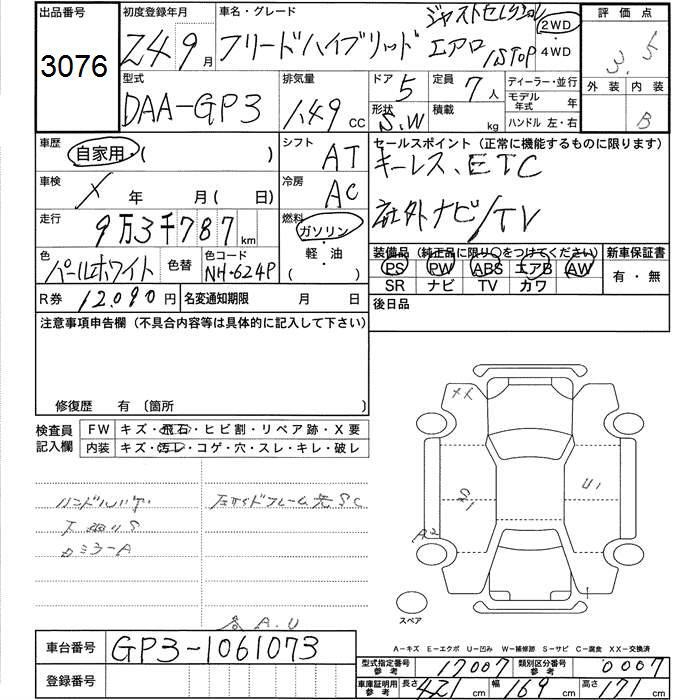 出品番号 初度登録年月 車名・グレード 評価点
3076 24 9月 フリードハイブリッド ジャストセレクション エアロ /STOP 2WD ・4WD 3.5
型式 排気量 ドア 定員 ディーラー・並行 外装 内装
DAA-GP3 1.49 CC 5 7人 モデル年式 年
形状 S.W 積載 kg ハンドル 左・右 B
車歴 自家用・( ) シフト AT セールスポイント (正常に機能するものに限ります)
キーレス、ETC
車検 X 年 月( 日) 冷房 AC
社外ナビ/TV
走行 9万3千787km 燃料 ガソリン・軽・油 ( )
装備品 (純正品に限り○をつけてください) 新車保証書
色 パールホワイト 色替 色コード NH-624P
PS PW ABS エアB AW 有・無
SR ナビ TV カワ
R券 12,090円 名変通知期限 月 日 後日品
注意事項申告欄(不具合内容等は具体的に記入して下さい)
修復歴 有 〔箇所 〕
検査員記入欄 FW キズ・飛石・ヒビ割・リペア跡・X要
内装 キズ・汚レ・コゲ・穴・スレ・キレ・破レ
A2
S1
U1
スペア
A.U
A-キズ E-エクボ U-凹み W-補修跡 S-サビ C-腐食 XX-交換済
車台番号 GP3-1061073
型式指定番号参考 17007 類別区分番号参考 0007
登録番号 車庫証明用参考 長さ 421cm 幅 169cm 高さ 171cm